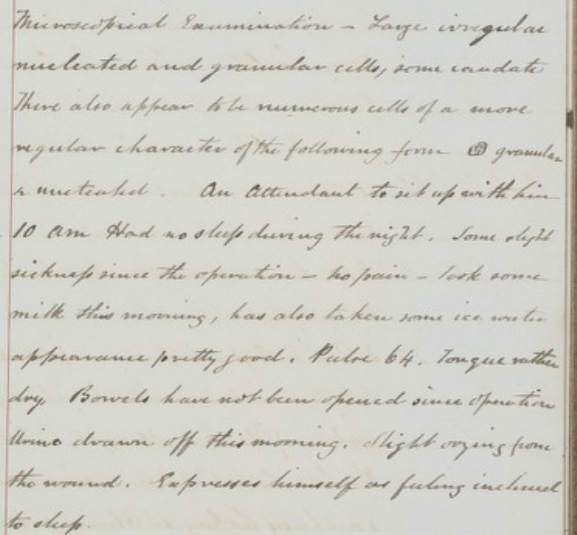 Microscopical Examination – Large irregular
nucleated and granular cells, some caudate
There also appear to be numerous cells of a more
regular character of the following form granular
& nucleated. An Attendant to sit up with him
10 am Had no sleep during the night. Some slight
sickness since the operation – no pain – took some
milk this morning, has also taken some ice water
appearance pretty good. Pulse 64. Tongue rather
dry. Bowels have not been opened since operation
Urine drawn off this morning. Slight oozing from
the wound. Expresses himself as feeling inclined
to sleep.